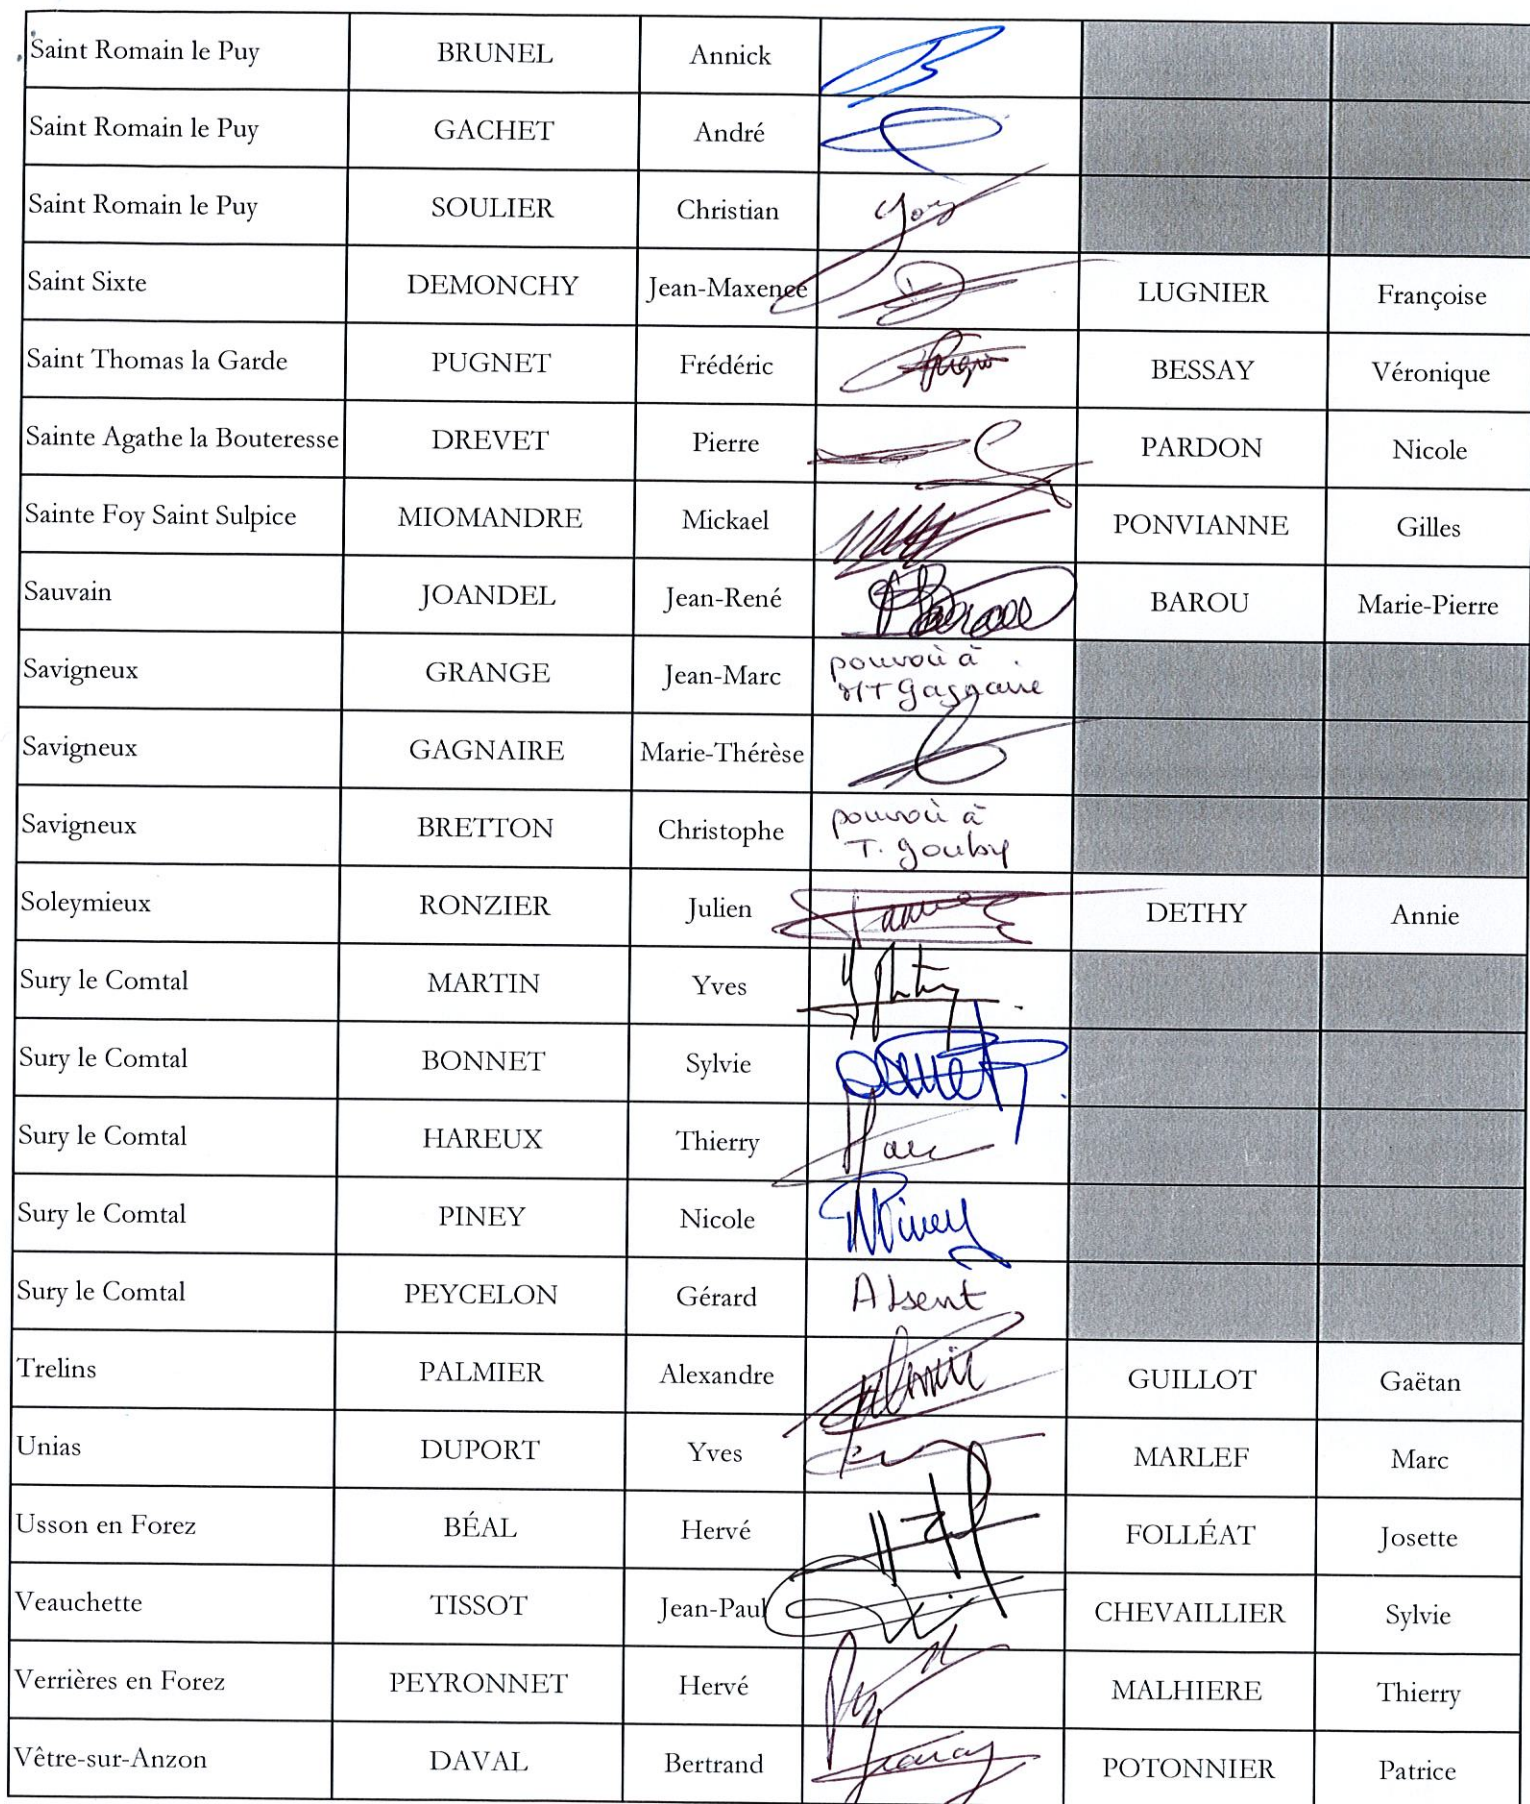 Saint Romain le Puy BRUNEL Annick
Saint Romain le Puy GACHET André
Saint Romain le Puy SOULIER Christian
Saint Sixte DEMONCHY Jean-Maxence LUGNIER Françoise
Saint Thomas la Garde PUGNET Frédéric BESSAY Véronique
Sainte Agathe la Bouteresse DREVET Pierre PARDON Nicole
Sainte Foy Saint Sulpice MIOMANDRE Mickael PONVIANNE Gilles
Sauvain JOANDEL Jean-René BAROU Marie-Pierre
Savigneux GRANGE Jean-Marc pouvoir à
MT Gagnaire
Savigneux GAGNAIRE Marie-Thérèse
Savigneux BRETTON Christophe pouvoir à
T. Gouby
Soleymieux RONZIER Julien DETHY Annie
Sury le Comtal MARTIN Yves
Sury le Comtal BONNET Sylvie
Sury le Comtal HAREUX Thierry
Sury le Comtal PINEY Nicole
Sury le Comtal PEYCELON Gérard Absent
Trelins PALMIER Alexandre GUILLOT Gaëtan
Unias DUPORT Yves MARLEF Marc
Usson en Forez BÉAL Hervé FOLLÉAT Josette
Veauchette TISSOT Jean-Paul CHEVAILLIER Sylvie
Verrières en Forez PEYRONNET Hervé MALHIERE Thierry
Vêtre-sur-Anzon DAVAL Bertrand POTONNIER Patrice